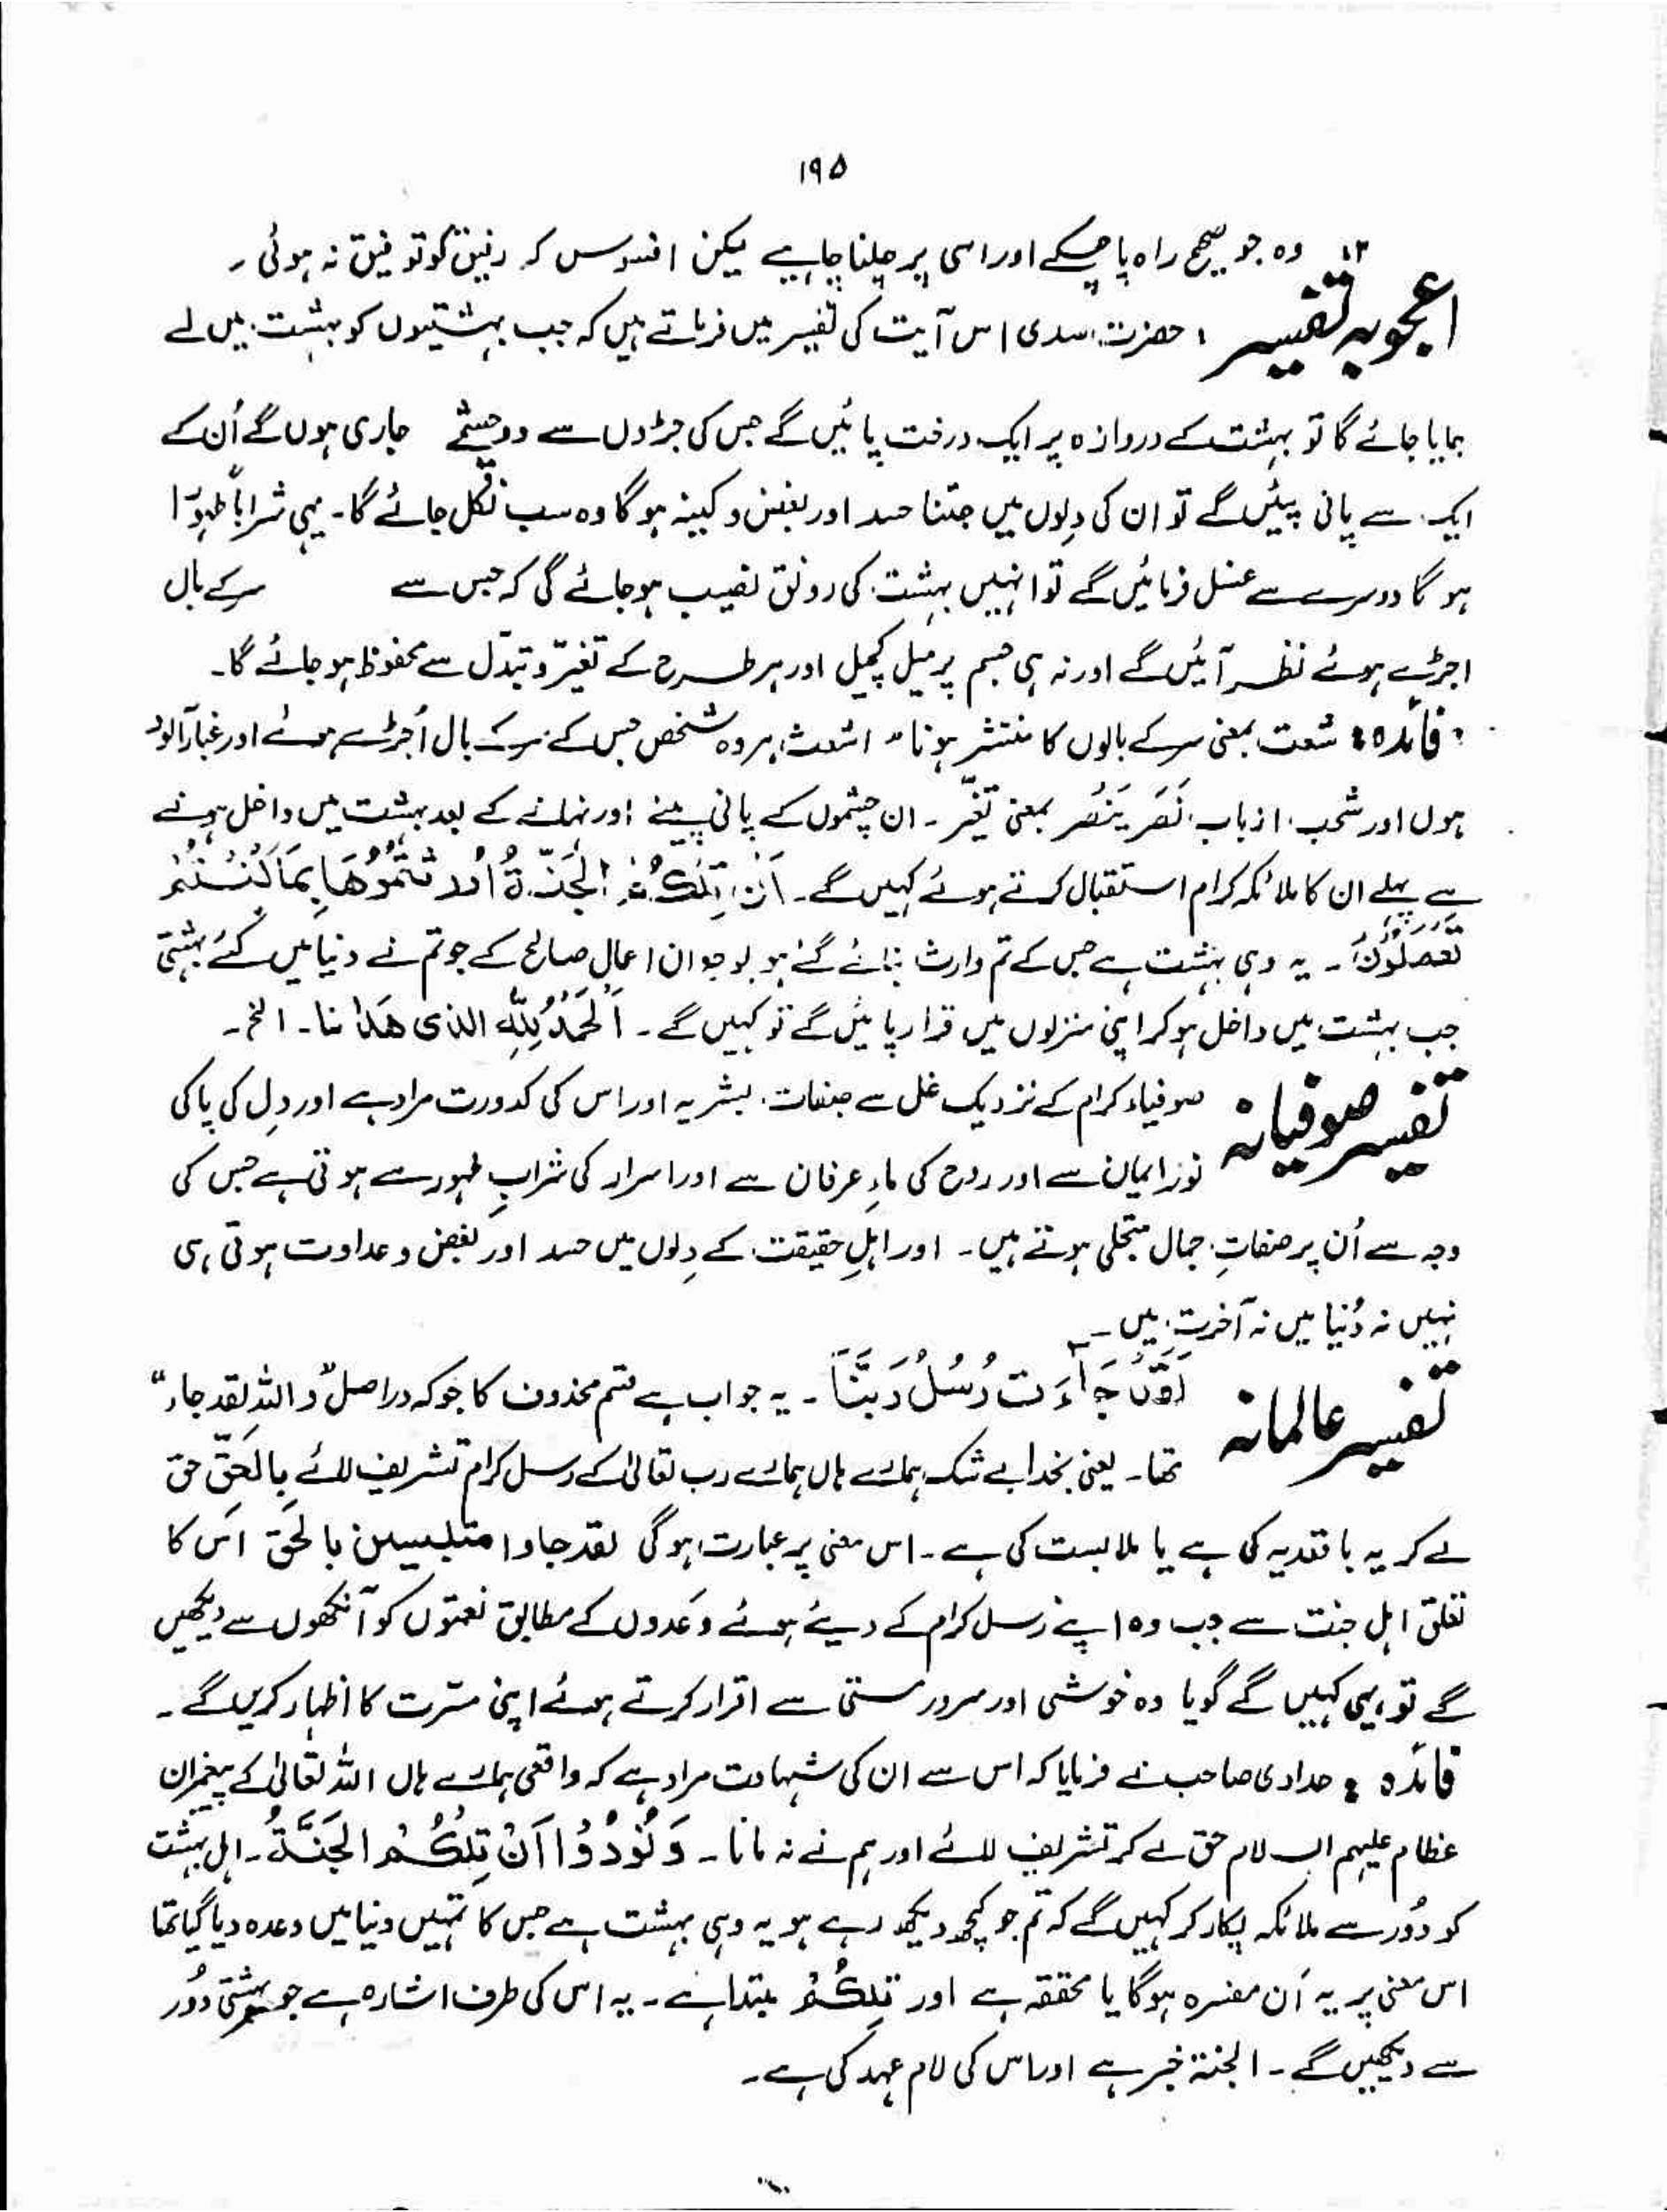 ۱۹۵
۱۳ وہ جو صحیح راہ پا چکے اور اسی پر چلنا چاہیے لیکن افسوس کہ رفیق کو توفیق نہ ہوئی۔
اعجوبہ تفسیر : حضرت سدی اس آیت کی تفسیر میں فرماتے ہیں کہ جب بہشتیوں کو بہشت میں لے
جایا جائے گا تو بہشت کے دروازہ پر ایک درخت پائیں گے جس کی جڑوں سے دو چشمے جاری ہوں گے اُن کے
ایک سے پانی پیئیں گے تو ان کی دِلوں میں جتنا حسد اور بغض و کینہ ہو گا وہ سب نکل جائے گا۔ یہی شراباً طہورًا
ہو گا دوسرے سے غسل فرمائیں گے تو انہیں بہشت کی رونق نصیب ہو جائے گی کہ جس سے سر کے بال
اجڑے ہوئے نظر آئیں گے اور نہ ہی جسم پر میل کچیل اور ہر طرح کے تغیّر و تبدّل سے محفوظ ہو جائے گا۔
فائدہ : شعث بمعنی سر کے بالوں کا منتشر ہونا۔ اشعث ہر وہ شخص جس کے سر کے بال اُجڑے ہوئے اور غبار آلود
ہوں اور شحب از باب نَصَرَ یَنْصُر بمعنی تغیّر۔ ان چشموں کے پانی پینے اور نہانے کے بعد بہشت میں داخل ہونے
سے پہلے ان کا ملائکہ کرام استقبال کرتے ہوئے کہیں گے۔ اَنْ تِلْكُمُ الْجَنَّةُ اُوْرِثْتُمُوْهَا بِمَا كُنْتُمْ
تَعْمَلُوْنَ۔ یہ وہی بہشت ہے جس کے تم وارث بنائے گئے ہو بوجہ ان اعمال صالح کے جو تم نے دنیا میں کئے بہشتی
جب بہشت میں داخل ہو کر اپنی منزلوں میں قرار پائیں گے تو کہیں گے۔ اَلْحَمْدُ لِلّٰهِ الذی هَدٰانا۔ الخ۔
تفسیر صوفیانہ صوفیاء کرام کے نزدیک غل سے صفات بشریہ اور اس کی کدورت مراد ہے اور دِل کی پاکی
نور ایمان سے اور روح کی ماءِ عرفان سے اور اسرار کی شرابِ طہور سے ہوتی ہے جس کی
وجہ سے اُن پر صفاتِ جمال متجلی ہوتے ہیں۔ اور اہلِ حقیقت کے دِلوں میں حسد اور بغض و عداوت ہوتی ہی
نہیں نہ دُنیا میں نہ آخرت میں۔
تفسیر عالمانہ لَقَدْ جَآءَت رُسُلُ رَبِّنَا۔ یہ جواب ہے قسم محذوف کا جو کہ دراصل "واللہ لقد جاء"
تھا۔ یعنی بخدا بے شک ہمارے ہاں ہمارے رب تعالیٰ کے رسل کرام تشریف لائے بِالْحَقِّ حق
لے کر یہ با تعدیہ کی ہے یا ملابست کی ہے۔ اس معنی پر عبارت ہوگی لقد جاوا متلبسین بالحق اس کا
تعلق اہل جنت سے جب وہ اپنے رسل کرام کے دیئے ہوئے وعدوں کے مطابق نعمتوں کو آنکھوں سے دیکھیں
گے تو یہی کہیں گے گویا وہ خوشی اور سرور مستی سے اقرار کرتے ہوئے اپنی مسّرت کا اظہار کریں گے۔
فائدہ : حدادی صاحب نے فرمایا کہ اس سے ان کی شہادت مراد ہے کہ واقعی ہمارے ہاں اللہ تعالیٰ کے پیغمبران
عظام علیہم السلام حق لے کر تشریف لائے اور ہم نے نہ مانا۔ وَ نُوْدُوْا اَنْ تِلْكُمُ الْجَنَّةُ۔ اہل بہشت
کو دُور سے ملائکہ پکار کر کہیں گے کہ تم جو کچھ دیکھ رہے ہو یہ وہی بہشت ہے جس کا تمہیں دنیا میں وعدہ دیا گیا تھا
اس معنی پر یہ اَن مفسرہ ہوگا یا مخففہ ہے اور تِلْكُمُ مبتدا ہے۔ یہ اس کی طرف اشارہ ہے جو بہشتی دُور
سے دیکھیں گے۔ الجنۃ خبر ہے اور اس کی لام عہد کی ہے۔